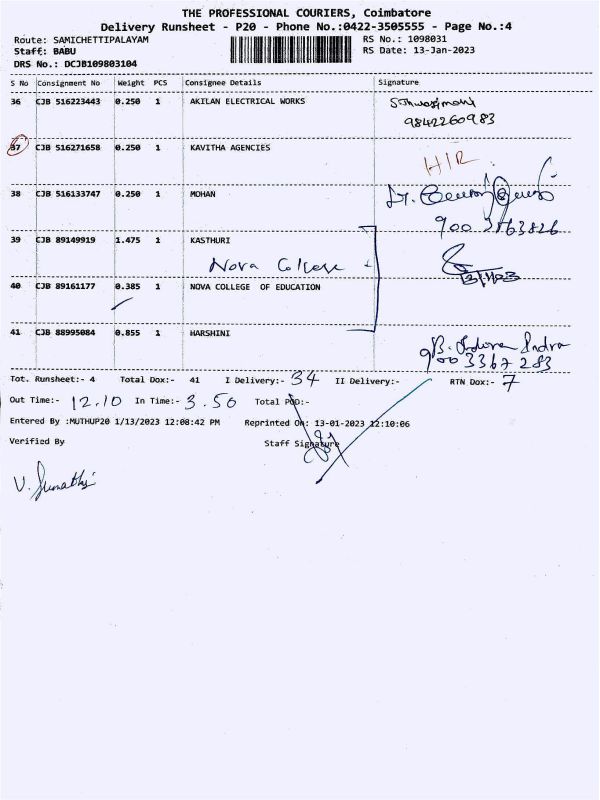 THE PROFESSIONAL COURIERS, Coimbatore
Delivery Runsheet - P20 - Phone No.:0422-3505555 - Page No.:4
Route: SAMICHETTIPALAYAM RS No.: 1098031
Staff: BABU RS Date: 13-Jan-2023
DRS No.: DCJB109803104
S No Consignment No Weight PCS Consignee Details Signature
36 CJB 516223443 0.250 1 AKILAN ELECTRICAL WORKS
9842260983
37 CJB 516271658 0.250 1 KAVITHA AGENCIES
38 CJB 516133747 0.250 1 MOHAN
9003863826
39 CJB 89149919 1.475 1 KASTHURI
Nova College
40 CJB 89161177 0.385 1 NOVA COLLEGE OF EDUCATION
41 CJB 88995084 0.855 1 HARSHINI
9003367283
Tot. Runsheet:- 4 Total Dox:- 41 I Delivery:- 34 II Delivery:- RTN Dox:- 7
Out Time:- 12.10 In Time:- 3.50 Total POD:-
Entered By :MUTHUP20 1/13/2023 12:08:42 PM Reprinted On: 13-01-2023 12:10:06
Verified By Staff Signature